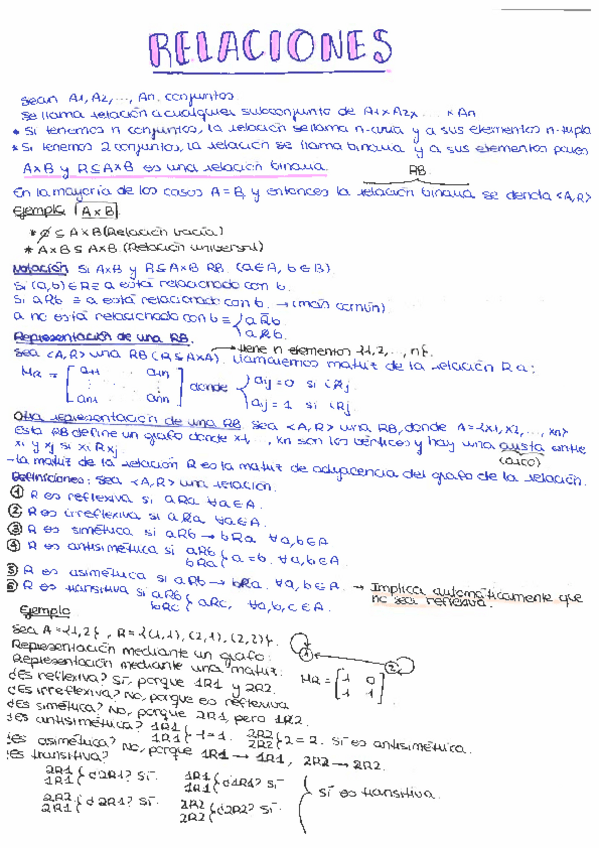 RELACIONES
Sean A1, A2, ..., An. conjuntos
Se llama relación a cualquier subconjunto de A1 x A2 x ... x An
* Si tenemos n conjuntos, la relación se llama n-aria y a sus elementos n-tupla
* Si tenemos 2 conjuntos, la relación se llama binaria y a sus elementos pares
AxB y R⊆AxB es una relación binaria. RB.
En la mayoría de los casos A=B, y entonces la relación binaria se denota <A,R>
Ejemplo AxB
* ∅ ⊆ AxB (Relación vacía)
* AxB ⊆ AxB. (Relación universal)
Notación Si AxB y R⊆AxB RB. (a∈A, b∈B)
Si (a,b)∈R ≡ a está relacionado con b.
Si aRb ≡ a está relacionado con b. → (más común)
a no está relacionado con b ≡ { a R̄ b.
a R̸ b.
Representación de una RB. → tiene n elementos {1,2,...,n}.
Sea <A,R> una RB (R⊆AxA). Llamaremos matriz de la relación R a:
MR = [ a11 ... a1n
an1 ... ann ] donde { aij = 0 si i R̸ j.
aij = 1 si iRj.
Otra representación de una RB Sea <A,R> una RB, donde A={x1, x2, ..., xn}
Esta RB define un grafo donde x1, ..., xn son los vértices y hay una arista entre
xi y xj si xi R xj. (arco)
- la matriz de la relación R es la matriz de adyacencia del grafo de la relación.
Definiciones: Sea <A,R> una relación.
① R es reflexiva si aRa ∀a∈A.
② R es irreflexiva si aR̸a ∀a∈A.
③ R es simétrica si aRb → bRa ∀a,b∈A
④ R es antisimétrica si aRb
bRa { a=b. ∀a,b∈A.
⑤ R es asimétrica si aRb → bR̸a. ∀a,b∈A. → Implica automáticamente que
no sea reflexiva.
⑥ R es transitiva si aRb
bRc { aRc, ∀a,b,c∈A.
Ejemplo
Sea A={1,2}, R={(1,1), (2,1), (2,2)}.
Representación mediante un grafo: 1 2
Representación mediante una matriz: MR = [ 1 0
1 1 ]
¿Es reflexiva? Sí, porque 1R1 y 2R2.
¿Es irreflexiva? No, porque es reflexiva
¿Es simétrica? No, porque 2R1, pero 1R̸2.
¿Es antisimétrica? 1R1
1R1 { 1=1. 2R2
2R2 { 2=2. Sí es antisimétrica.
¿Es asimétrica? No, porque 1R1 → 1R1, 2R2 → 2R2.
¿Es transitiva?
2R1
1R1 { ¿2R1? Sí 1R1
1R1 { ¿1R1? Sí
2R2
2R1 { ¿2R1? Sí 2R2
2R2 { ¿2R2? Sí
Sí es transitiva.